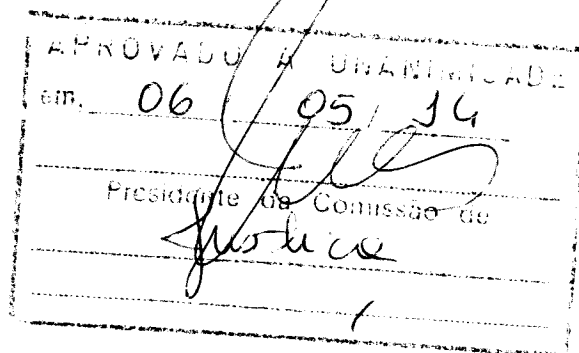 APROVADO À UNANIMIDADE
em, 06 / 05 / 14
Presidente da Comissão de
Justiça